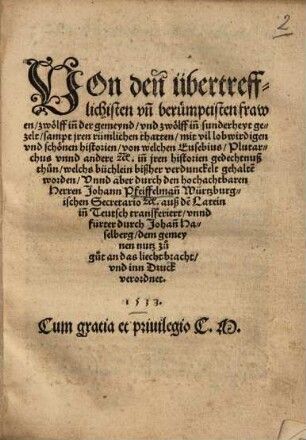 2
VOn deñ übertreff-
lichisten vñ berümptisten fraw
en/zwölff iñ der gemeynd/vnd zwölff iñ sunderheyt ge-
zelt/sampt jren rümlichen thatten/mit vil lobwirdigen
vnd schönen historien/von welchen Eusebius/Plutar-
chus vnnd andere ꝛc. iñ jren historien gedechtnuß
thůn/welchs büchlein bißher verdunckelt gehaltẽ
worden/Vnnd aber durch den hochachtbaren
Herren Johann Pfeiffelmañ Würtzburg-
ischen Secretario ꝛc. auß dẽ Latein
iñ Teutsch transferiert/vnnd
fürter durch Johañ Ha-
selberg/dem gemey
nen nutz zů
gůt an das liecht bracht/
vnd inn Druck
verordnet.
1533.
Cum gracia et priuilegio C. M.